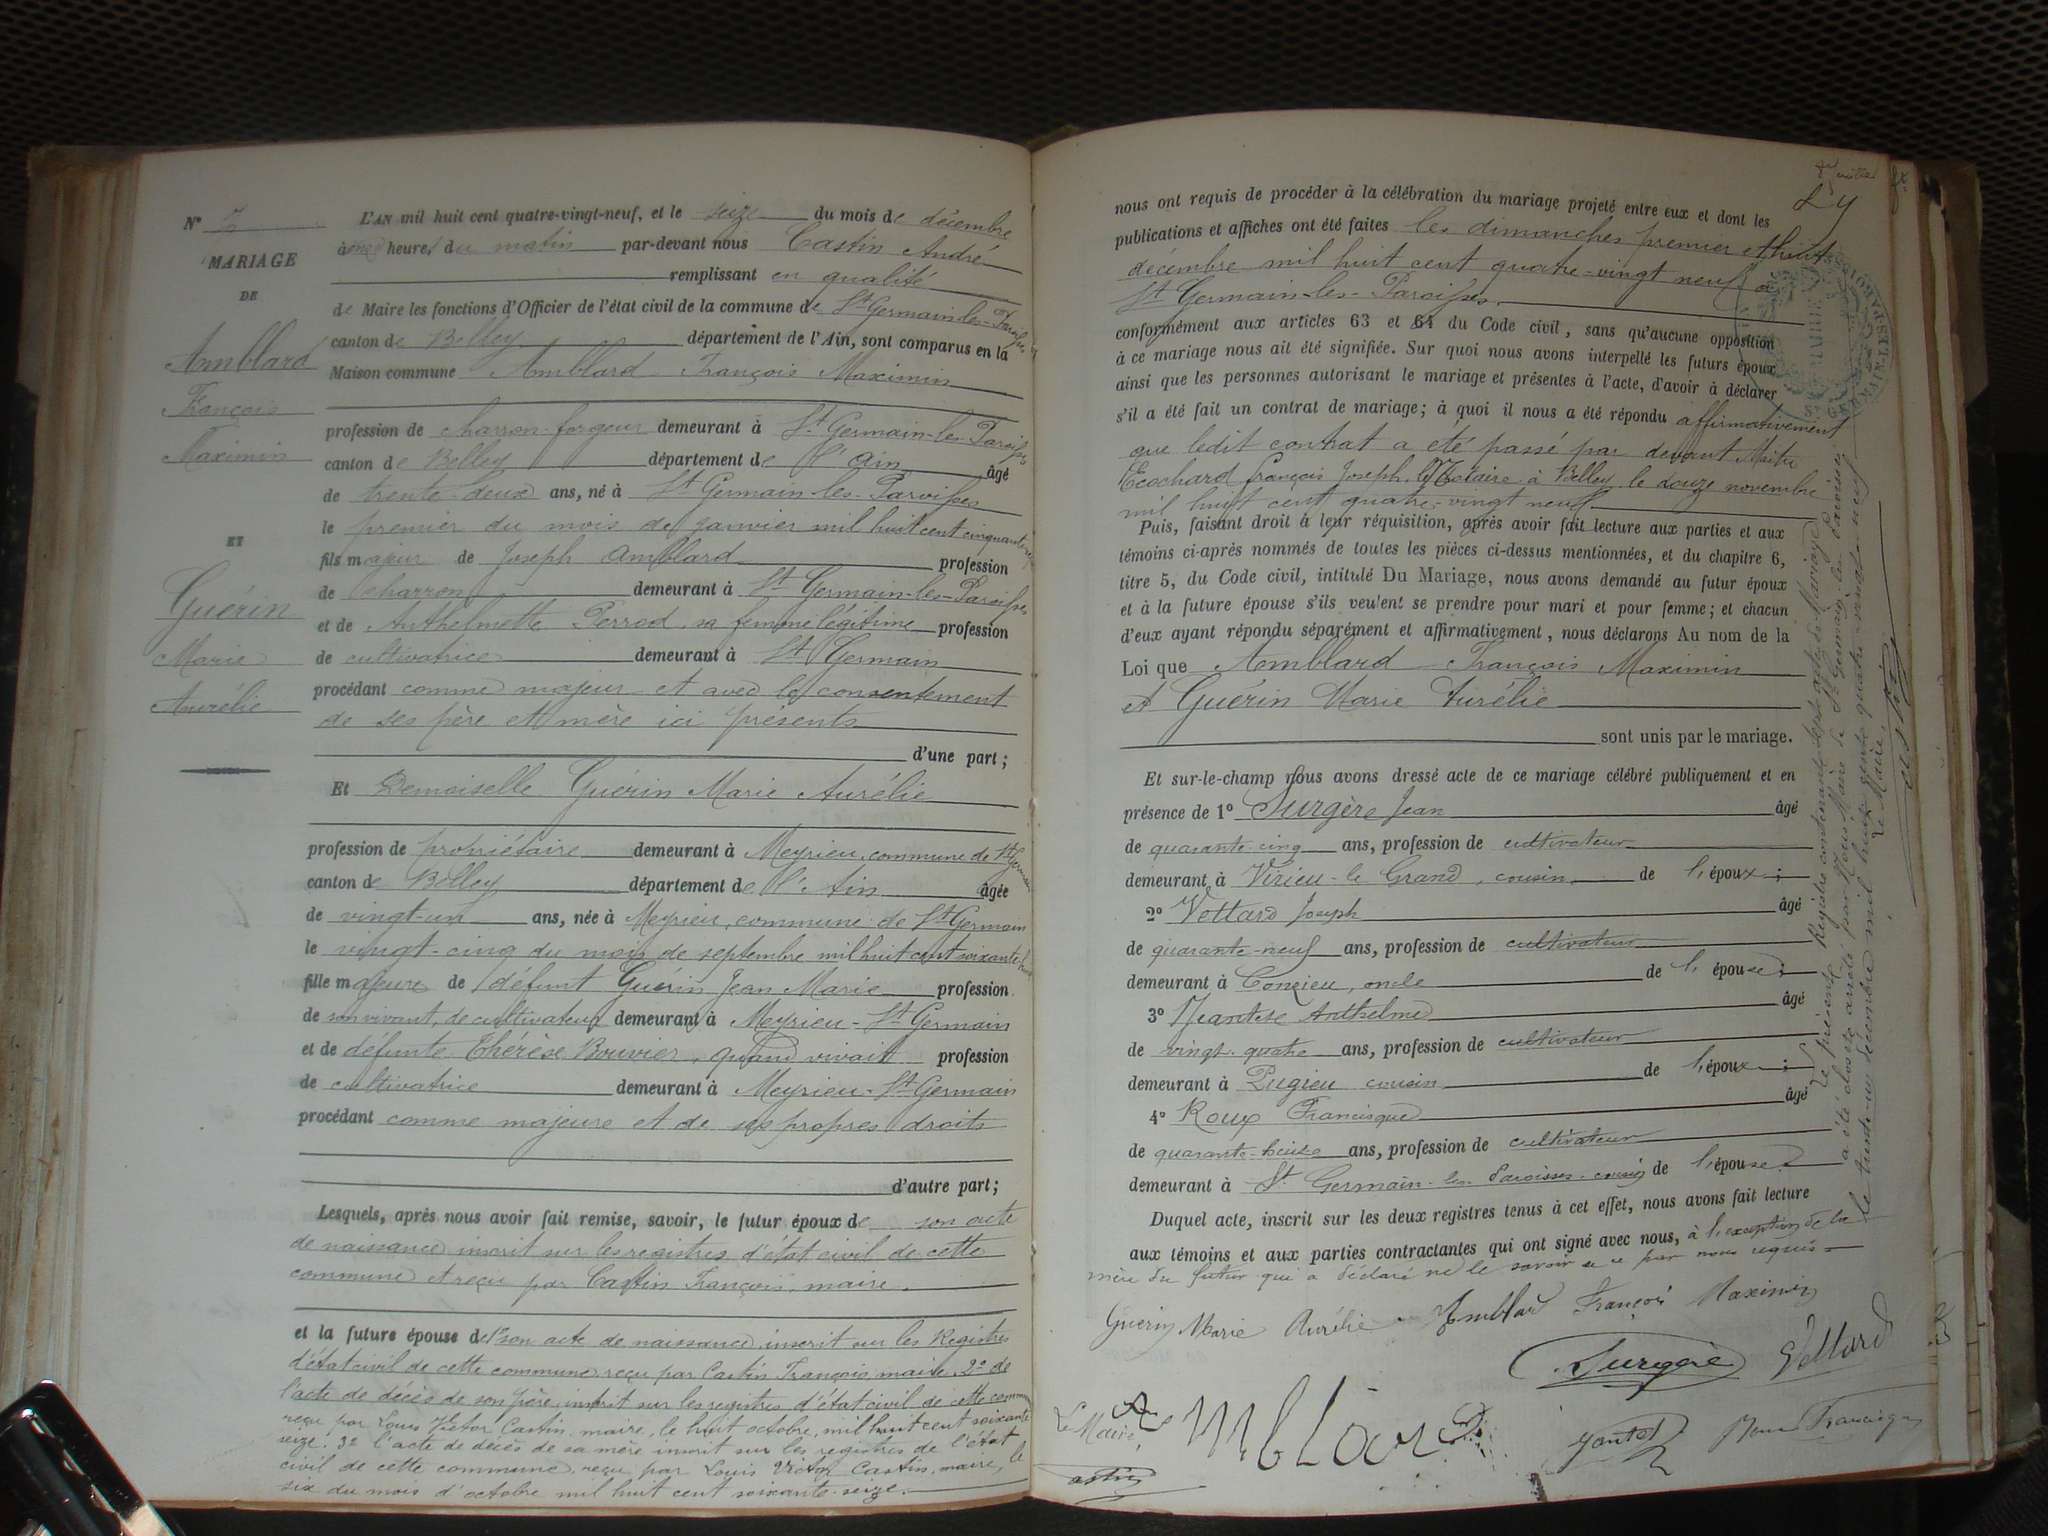 N° 7
MARIAGE
DE
Amblard
François
Maximin
ET
Guérin
Marie
Aurélie
L'AN mil huit cent quatre-vingt-neuf, et le seize du mois de décembre
à onze heures du matin par-devant nous Castin André
remplissant en qualité
de Maire les fonctions d'Officier de l'état civil de la commune de St Germain-les-Paroisses
canton de Belley département de l'Ain, sont comparus en la
Maison commune Amblard François Maximin
profession de charron-forgeur demeurant à St Germain-les-Paroisses
canton de Belley département de l'Ain âgé
de trente-deux ans, né à St Germain-les-Paroisses
le premier du mois de janvier mil huit cent cinquante
fils majeur de Joseph Amblard profession
de charron demeurant à St Germain-les-Paroisses
et de Anthelmette Perrod, sa femme légitime profession
de cultivatrice demeurant à St Germain
procédant comme majeur et avec le consentement
de ses père et mère ici présents
d'une part ;
Et Demoiselle Guérin Marie Aurélie
profession de propriétaire demeurant à Meyrieu, commune de St Germain
canton de Belley département de l'Ain âgée
de vingt-un ans, née à Meyrieu, commune de St Germain
le vingt-cinq du mois de septembre mil huit cent soixante-huit
fille majeure de défunt Guérin Jean Marie profession
de son vivant, de cultivateur demeurant à Meyrieu-St Germain
et de défunte Thérèse Bouvier, quand vivait profession
de cultivatrice demeurant à Meyrieu-St Germain
procédant comme majeure et de ses propres droits
d'autre part ;
Lesquels, après nous avoir fait remise, savoir, le futur époux de son acte
de naissance inscrit sur les registres d'état civil de cette
commune et reçu par Castin François, maire.
et la future épouse de 1° son acte de naissance inscrit sur les Registres
d'état civil de cette commune reçu par Castin François maire, 2° de
l'acte de décès de son père, inscrit sur les registres d'état civil de cette commune
reçu par Louis Victor Castin, maire, le huit octobre, mil huit cent soixante
seize. 3° l'acte de décès de sa mère inscrit sur les registres de l'état
civil de cette commune, reçu par Louis Victor Castin, maire, le
six du mois d'octobre mil huit cent soixante-seize.
nous ont requis de procéder à la célébration du mariage projeté entre eux et dont les
publications et affiches ont été faites les dimanches premier et huit
décembre mil huit cent quatre-vingt neuf à
St Germain-les-Paroisses.
conformément aux articles 63 et 64 du Code civil, sans qu'aucune opposition
à ce mariage nous ait été signifiée. Sur quoi nous avons interpellé les futurs époux
ainsi que les personnes autorisant le mariage et présentes à l'acte, d'avoir à déclarer
s'il a été fait un contrat de mariage ; à quoi il nous a été répondu affirmativement
que ledit contrat a été passé par devant Maître
Ecochard françois Joseph, Notaire à Belley le douze novembre
mil huit cent quatre-vingt neuf
Puis, faisant droit à leur réquisition, après avoir fait lecture aux parties et aux
témoins ci-après nommés de toutes les pièces ci-dessus mentionnées, et du chapitre 6,
titre 5, du Code civil, intitulé Du Mariage, nous avons demandé au futur époux
et à la future épouse s'ils veulent se prendre pour mari et pour femme ; et chacun
d'eux ayant répondu séparément et affirmativement, nous déclarons Au nom de la
Loi que Amblard François Maximin
et Guérin Marie Aurélie
sont unis par le mariage.
Et sur-le-champ nous avons dressé acte de ce mariage célébré publiquement et en
présence de 1° Surgère Jean âgé
de quarante-cinq ans, profession de cultivateur
demeurant à Virieu-le Grand, cousin de l'époux ;
2° Vettard Joseph âgé
de quarante-neuf ans, profession de cultivateur
demeurant à Conzieu, oncle de l'épouse ;
3° Anthelme âgé
de vingt-quatre ans, profession de cultivateur
demeurant à Pugieu cousin de l'époux ;
4° Roux Francisque âgé
de ans, profession de cultivateur
demeurant à St Germain-les Paroisses cousin de l'épouse.
Duquel acte, inscrit sur les deux registres tenus à cet effet, nous avons fait lecture
aux témoins et aux parties contractantes qui ont signé avec nous, à l'exception de la
mère du futur qui a déclaré ne le savoir de ce par nous requis
Guérin Marie Aurélie Amblard François Maximin
Surgère Vettard
Le Maire, Amblard Roux Francisque
Castin
Le présent Registre contenant sept actes de Mariage
a été clos et arrêté par Nous Maire de St Germain-les-Paroisses
le trente-un décembre mil huit cent quatre-vingt-neuf
Le Maire,
Castin